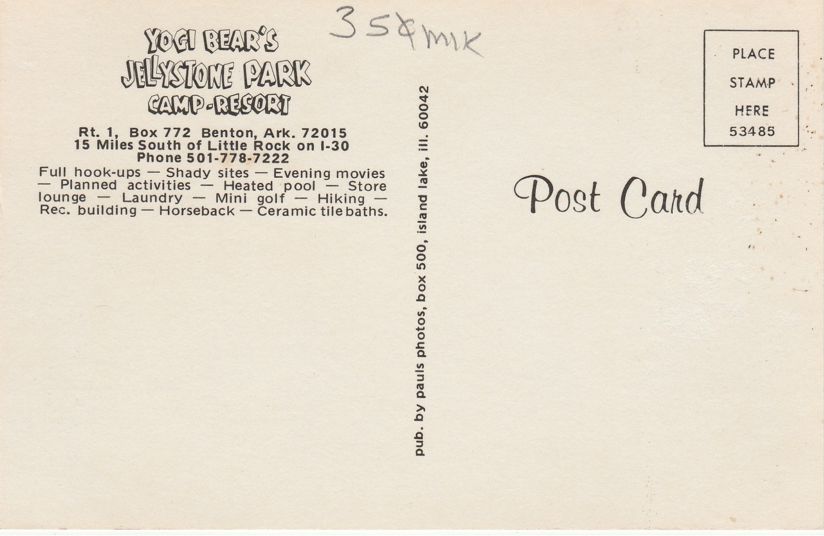 35¢ MIK
YOGI BEAR'S
JELLYSTONE PARK
CAMP-RESORT
Rt. 1, Box 772 Benton, Ark. 72015
15 Miles South of Little Rock on I-30
Phone 501-778-7222
Full hook-ups — Shady sites — Evening movies
— Planned activities — Heated pool — Store
lounge — Laundry — Mini golf — Hiking —
Rec. building — Horseback — Ceramic tile baths.
pub. by pauls photos, box 500, island lake, ill. 60042
PLACE
STAMP
HERE
53485
Post Card